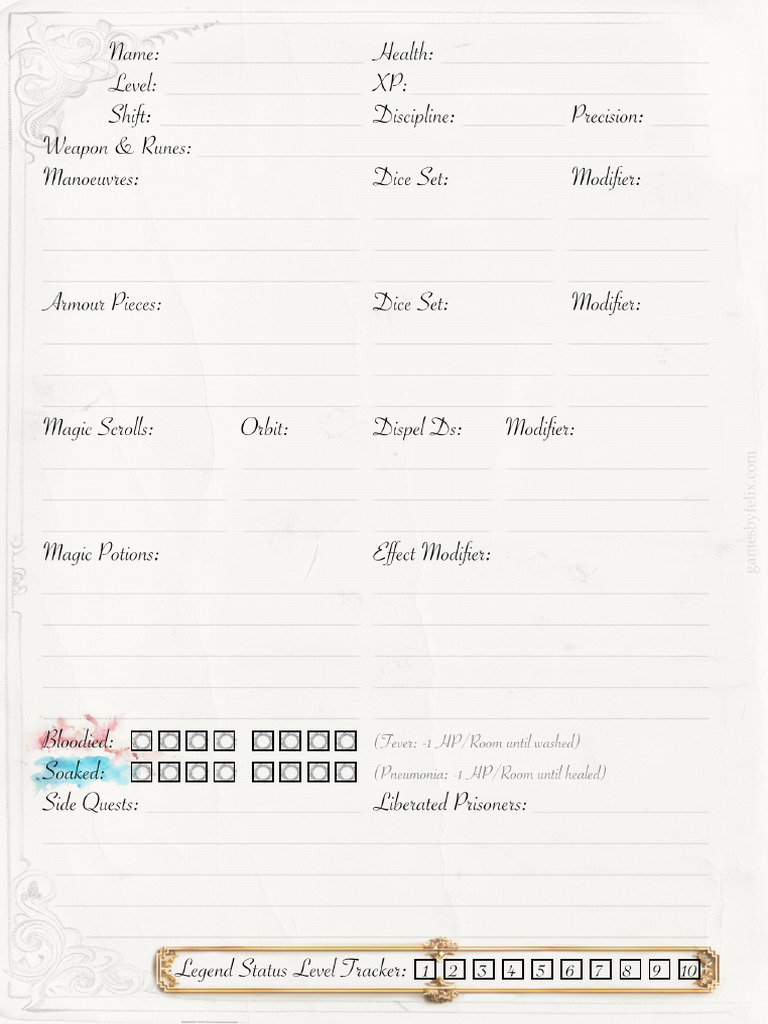 Name: Health:
Level: XP:
Shift: Discipline: Precision:
Weapon & Runes:
Manoeuvres: Dice Set: Modifier:
Armour Pieces: Dice Set: Modifier:
Magic Scrolls: Orbit: Dispel Ds: Modifier:
Magic Potions: Effect Modifier:
Bloodied: (Fever: -1 HP/Room until washed)
Soaked: (Pneumonia: -1 HP/Room until healed)
Side Quests: Liberated Prisoners:
Legend Status Level Tracker: 1 2 3 4 5 6 7 8 9 10
gamesbyfelix.com